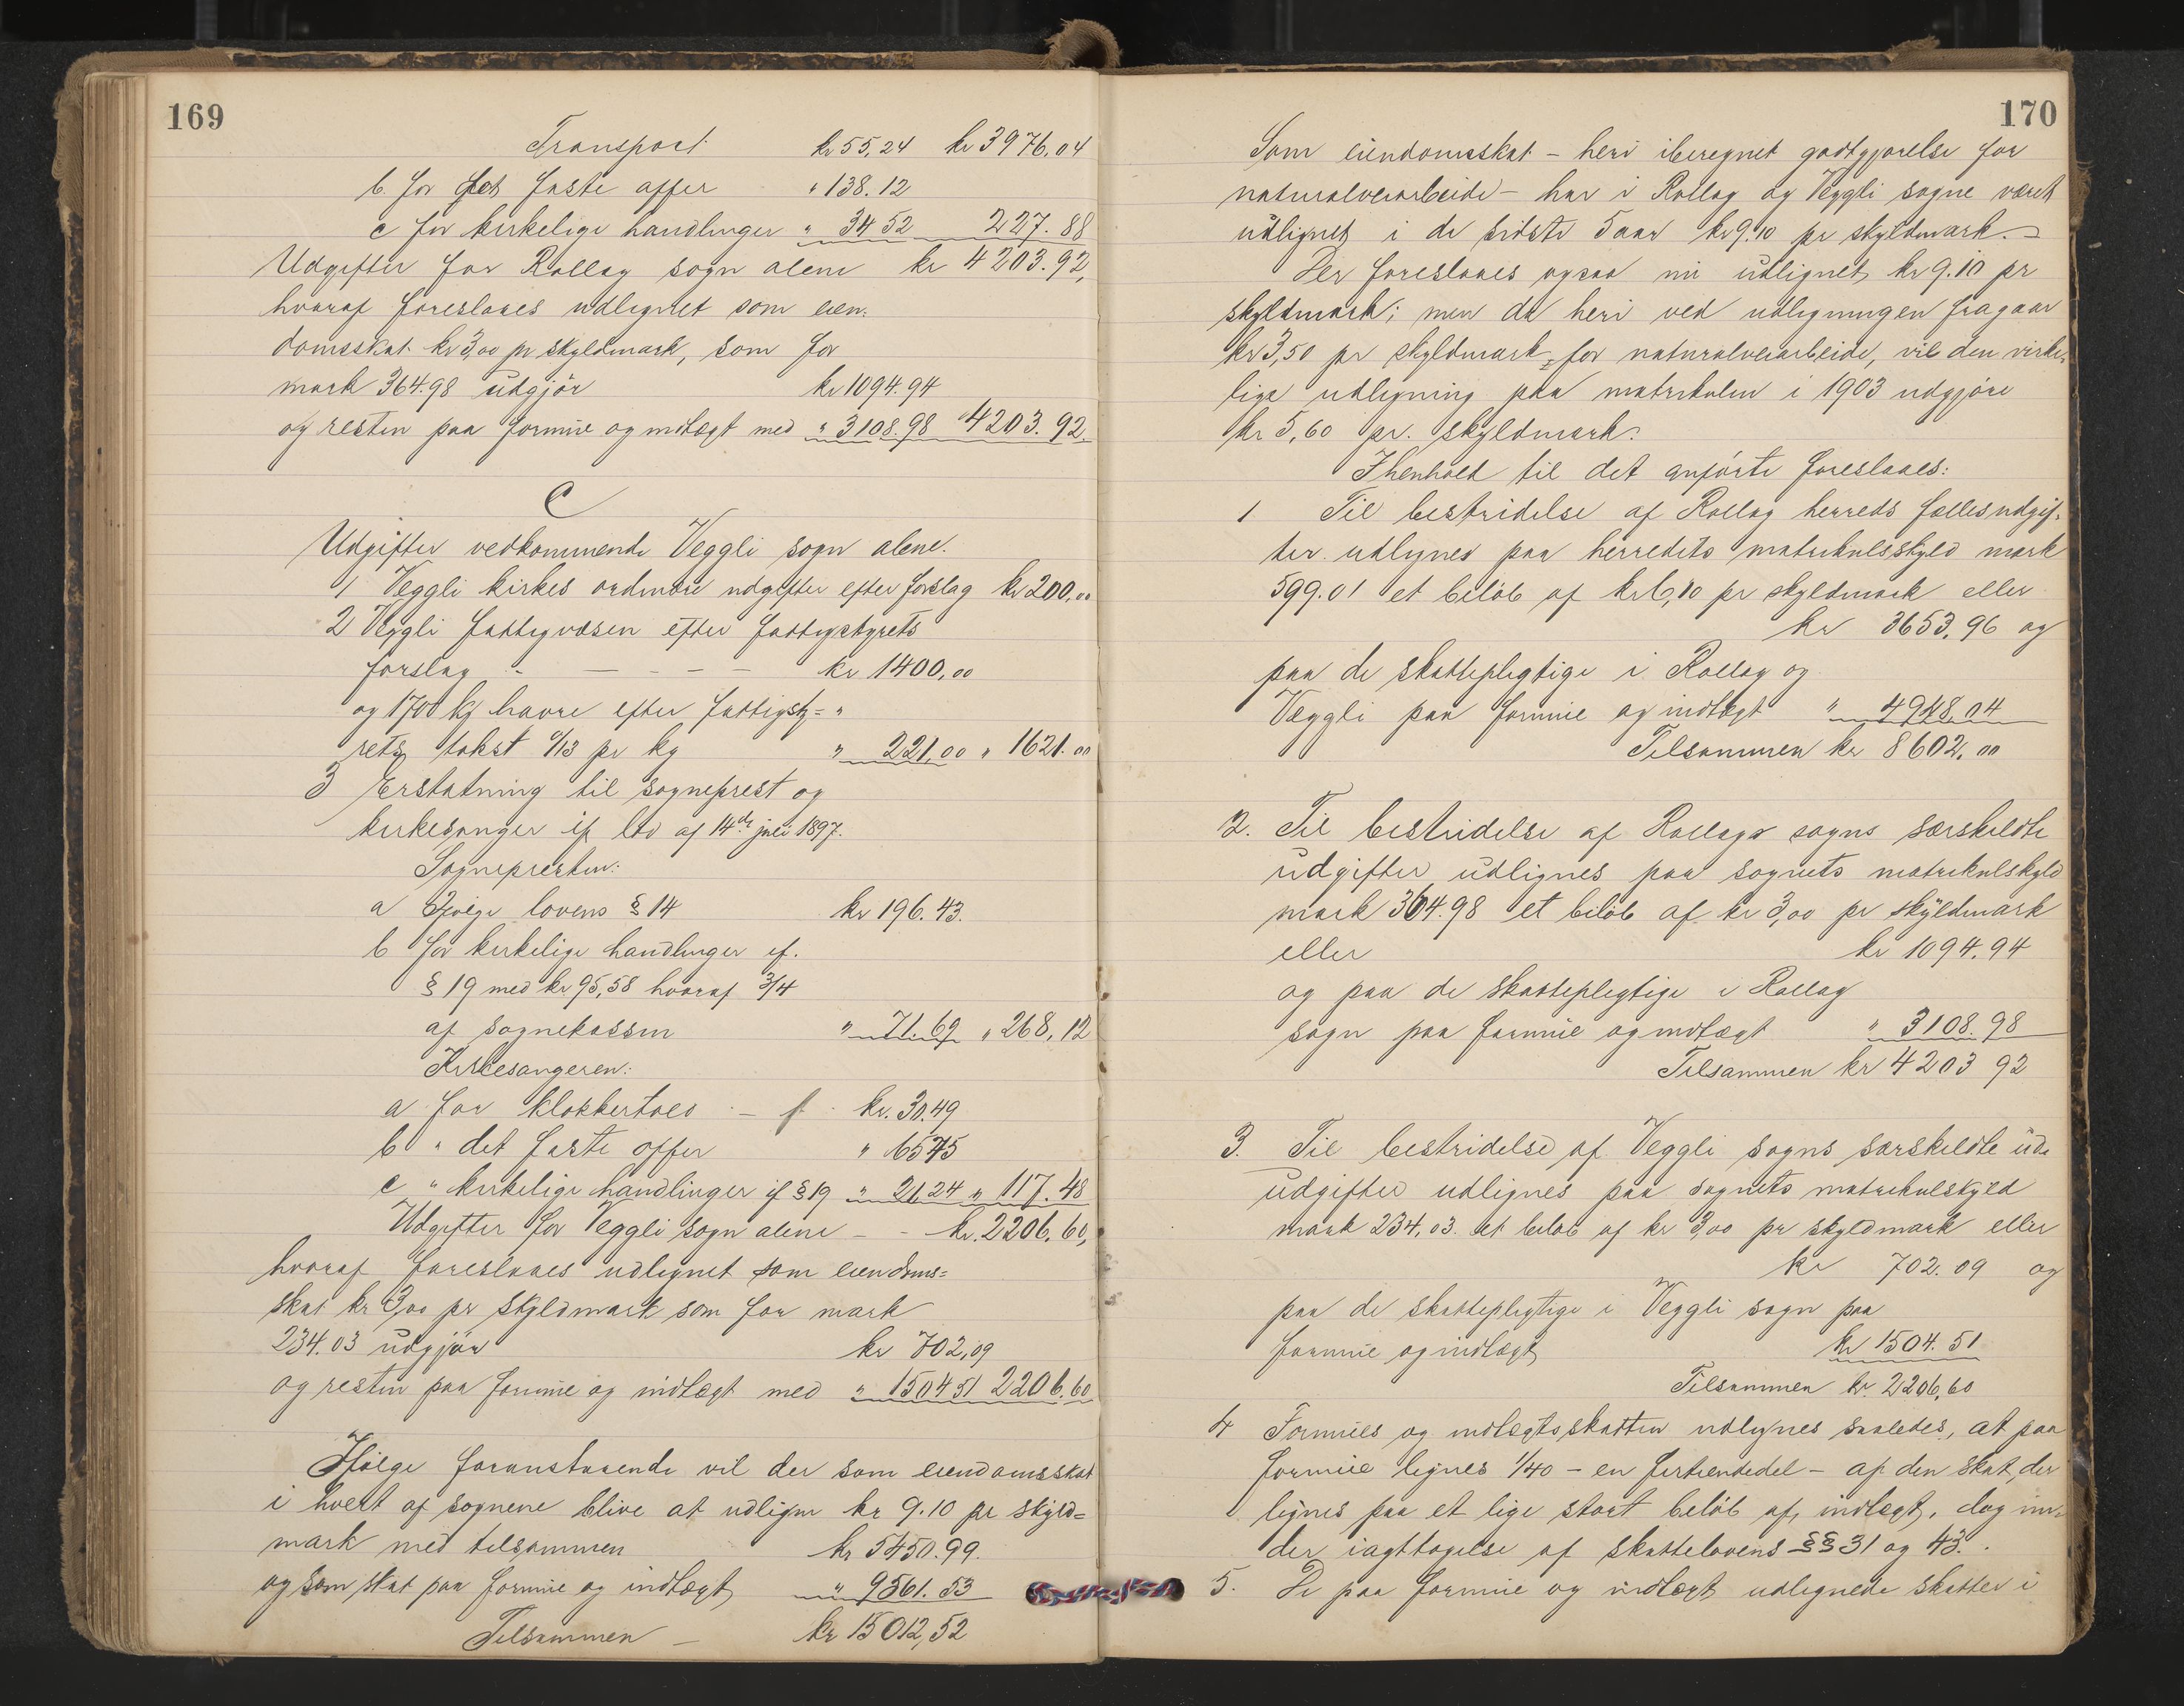 169
Transport kr 55,24 kr 3976,04
b. for det faste offer " 138.12
c for kirkelige handlinger " 34 52 227.88
Udgifter for Rollag sogn alene kr 4203.92,
hvoraf foreslaaes udlignet som eien-
domsskat kr 3,00 pr skyldmark, som for
mark 364.98 udgjør kr 1094.94
og resten paa formue og indtægt med " 3108.98 4203.92.
C
Udgifter vedkommende Veggli sogn alene.
1 Veggli kirkes ordinære udgifter efter forslag kr 200,00
2 Veggli fattigvæsen efter fattigstyrets
forslag - — - - — kr 1400,00
og 1700 kg havre efter fattigsty= "
rets takst 0/13 pr kg " 221,00 " 1621.00
3 Erstatning til sogneprest og
kirkesanger if lov af 14de juli 1897.
Sognepresten:
a Ifølge lovens § 14 kr 196.43.
b for kirkelige handlinger if.
§ 19 med kr 95,58 hvoraf 3/4
af sognekassen " 71.69 " 268,12
Kirkesangeren:
a for klokkertold - kr. 30.49
b " det faste offer " 65 75
c " kirkelige handlinger if § 19 " 21.24 " 117.48
Udgifter for Veggli sogn alene - - kr. 2206.60,
hvoraf foreslaaes udlignet som eiendoms=
skat kr 3,00 pr skyldmark som for mark
234.03 udgjør kr 702,09
og resten paa formue og indtægt med " 1504 51 2206.60
Ifølge foranstaaende vil der som eiendomsskat
i hvert af sognene blive at udligne kr 9.10 pr skyld=
mark med tilsammen kr 5450.99.
og som skat paa formue og indtægt " 9561.53
Tilsammen — kr 15012,52
170
Som eiendomsskat - heri iberegnet godtgjørelse for
naturalveiarbeide - har i Rollag og Veggli sogne været
udlignet i de sidste 5 aar kr 9.10 pr skyldmark. -
Der foreslaaes ogsaa nu udlignet kr 9.10 pr
skyldmark; men da heri ved udligningen fragaar
kr 3,50 pr skyldmark for naturalveiarbeide, vil den virke-
lige udligning paa matrikulen i 1903 udgjøre
kr 5,60 pr. skyldmark.
Ihenhold til det anførte foreslaaes:
1 Til bestridelse af Rollag herreds fællesudgif-
ter udlignes paa herredets matrikulsskyld mark
599.01 et beløb af kr 6,10 pr skyldmark eller
kr 3653,96 og
paa de skattepligtige i Rollag og
Veggli paa formue og indtægt " 4948,04
Tilsammen kr 8602,00
2. Til bestridelse af Rollags sogns særskildte
udgifter udlignes paa sognets matrikulskyld
mark 364.98 et beløb af kr 3,00 pr skyldmark
eller kr 1094.94
og paa de skattepligtige i Rollag
sogn paa formue og indtægt " 3108.98
Tilsammen kr 4203 92
3. Til bestridelse af Veggli sogns særskildte ud-
udgifter udlignes paa sognets matrikulskyld
mark 234,03 et beløb af kr 3,00 pr skyldmark eller
kr 702.09 og
paa de skattepligtige i Veggli sogn paa
formue og indtægt kr 1504.51
Tilsammen kr. 2206,60
4 Formues og indtægtsskatten udlignes saaledes, at paa
formue lignes 1/40 - en firtiendedel - af den skat, der
lignes paa et lige stort beløb af indtægt, dog un-
der iagttagelse af skattelovens §§ 31 og 43.
5. De paa formue og indtægt udlignede skatter i